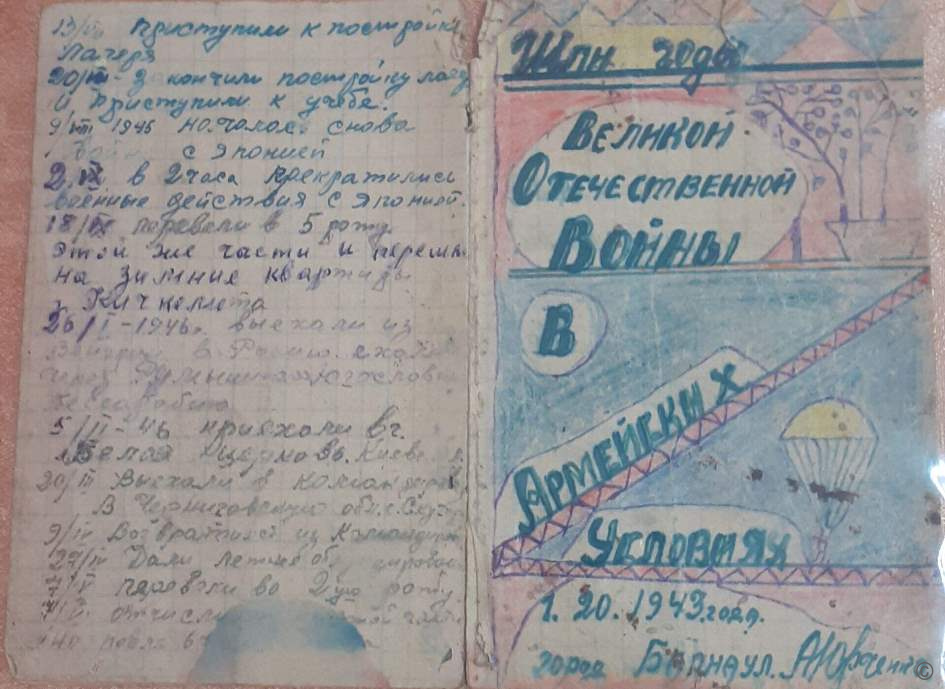 13/VI Приступили к постройки
Лагеря
20/VII Закончили постройку лаге
и Приступили к учебе.
9/VIII 1945 началась снова
война с Японией
2/IX в 2 часа прекратились
военные действия с Японией.
18/IX перевели в 5 роту
этой же части и перешли
на зимние квартиры
г. Кичкемета
26/I-1946г. выехали из
Венгрии в Россию. ехали
через Румынию
5/II-46 приехали в г.
Белая Церковь. Киевс
20/III Выехали в командировку
В Черниговскую обл.
9/IV Возвратился из командировки
24/IV Дали летнее
перевели во 2ую роту
отчисли
Шли годы
Великой
Отечественной
Войны
В
Армейских
Условиях
1. 20. 1943 года.
город Барнаул.
©